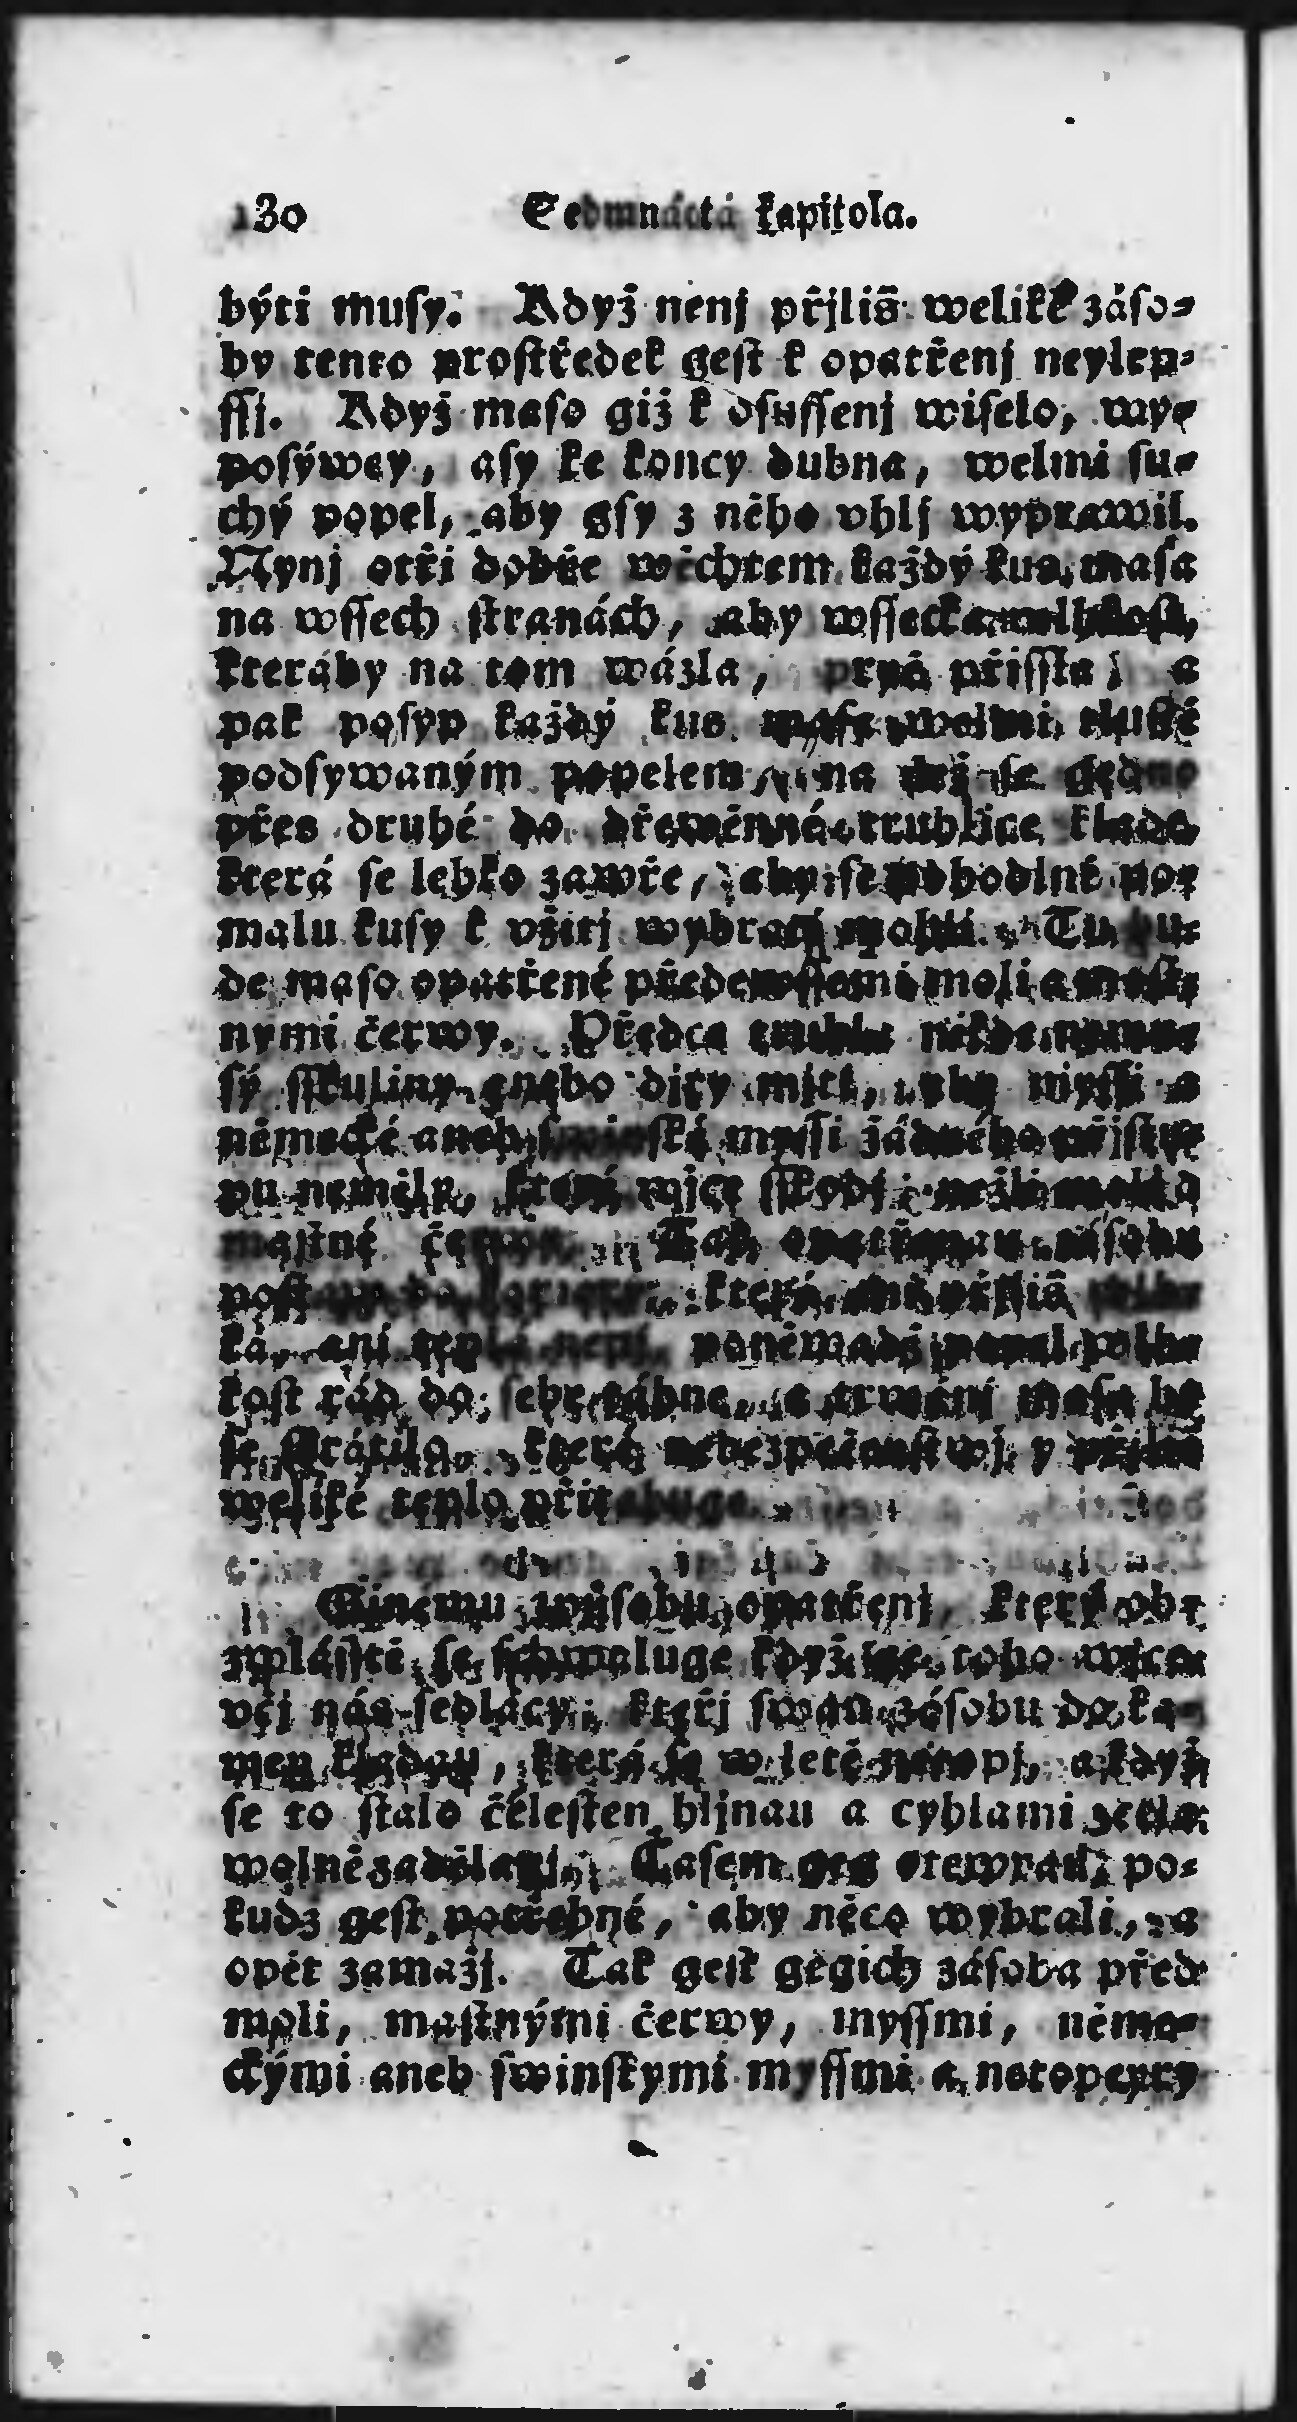 130 Sedmnáctá kapitola.
býti musý. Když nenj přjliš weliké záso-
by tento prostředek gest k opatřenj neylep-
ssj. Když maso giž k osussenj wiselo, wy-
posýwey, asy ke koncy dubna, welmi su-
chý popel, aby gsy z něho vhlj wyprawil.
Nynj otři dobře wěchtem každý kus masa
na wssech stranách, aby wssecka wlhkost,
kteráby na tom wázla, pryč přissla; a
pak posyp každý kus masa welmi tlustě
podsywaným popelem, na než se gedno
přes druhé do dřewěnné truhlice klade
která se lehko zawře, aby se pohodlně po
malu kusy k vžitj wybrati mohli. Tu bu-
de maso opatřené přede wssemi moli a mast-
nymi čerwy. Předce truhla někde
sý sskuliny anebo djry mjti, aby myssi a
německé aneb swinské myssi žádného přjstu-
pu neměly, které wjce sskodj nežli moli a
mastné čerwy. Tak opatřenau zásobu
která ani přjliš
ká, ani teplá nenj, poněwadž popel wlh-
kost rád do sebe táhne, a trwánj masa by
se ztrátilo, které nebezpečenstwj y přjliš
weliké teplo přitahuge.
Ginému způsobu opatřenj, který ob-
zwlásstě se schwaluge když ge toho wjce
včj nás sedlácy, kteřj swau zásobu do ka-
men kladau, která se w letě netopj, a když
se to stalo čélesten hljnau a cyhlami zcela
wolně zadělagj. Časem geg otewrau, po-
kudz gest potřebné, aby něco wybrali, a
opět zamažj. Tak gest gegich zásoba před
moli, mastnými čerwy, myssmi, něme-
ckými aneb swinskymi myssmi a netopeyry